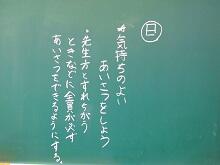 日
*気持ちのよい
あいさつをしよう
・先生方とすれちがう
ときなどに全員が必ず
あいさつをできるようにする。